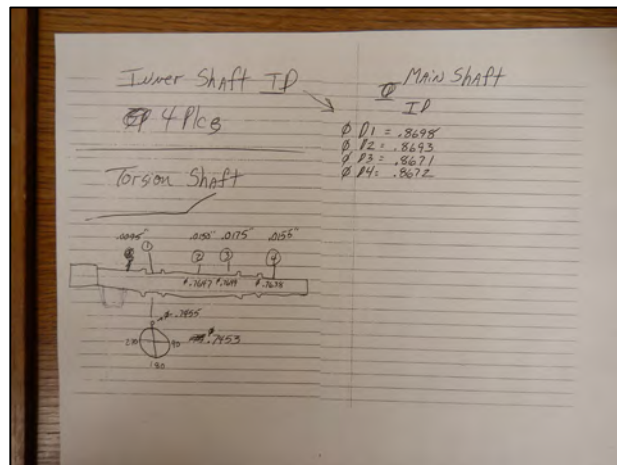 Inner Shaft ID
4 Plcs
Torsion Shaft
.0095" .0150" .0175" .0155"
1 2 3 4
ø.7647 ø.7644 ø.7638
0 ø.7455
270 90 ø.7453
180
Main Shaft
ID
ø D1 = .8698
ø D2 = .8693
ø D3 = .8671
ø D4 = .8672